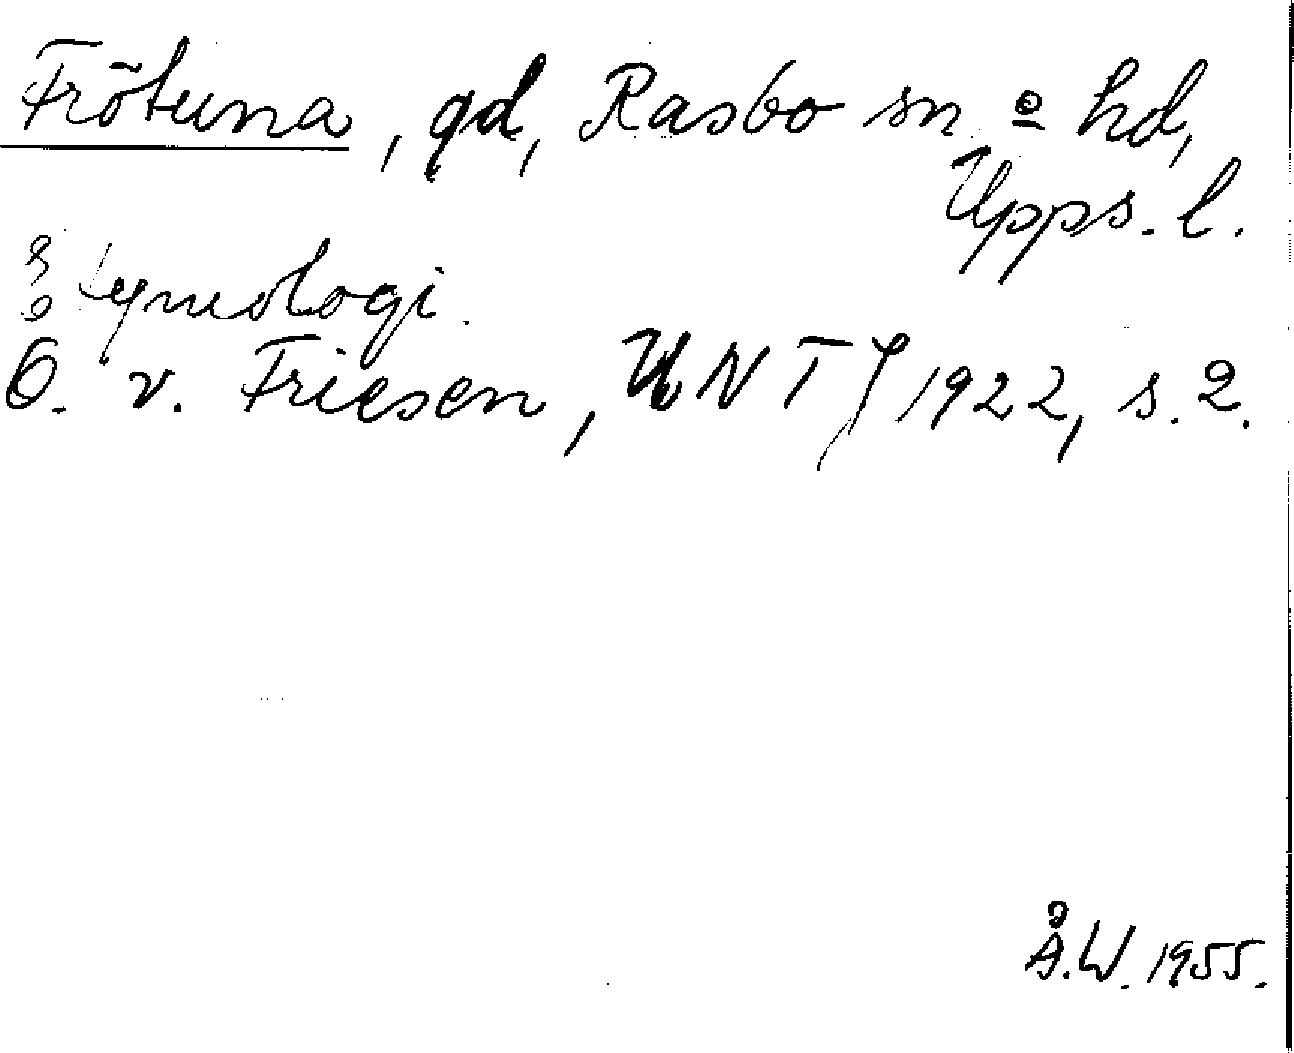 Frötuna, gd, Rasbo sn o hd,
Upps. l.
Etymologi.
O. v. Friesen, UNT 1922, s. 2.
Å.W. 1955.